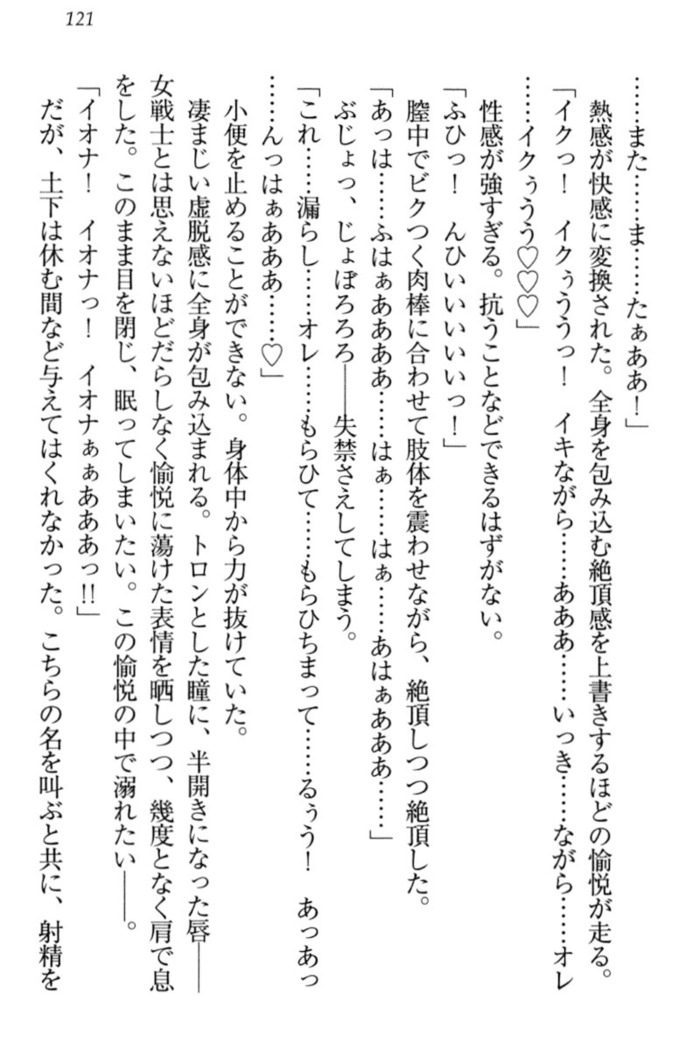 121
……また……ま……たぁああ！」
熱感が快感に変換された。全身を包み込む絶頂感を上書きするほどの愉悦が走る。
「イクっ！　イクぅううっ！　イキながら……あああ……いっき……ながら……オレ
……イクぅうう♡♡♡」
性感が強すぎる。抗うことなどできるはずがない。
「ふひっ！　んひいいいいいっ！」
膣中でビクつく肉棒に合わせて肢体を震わせながら、絶頂しつつ絶頂した。
「あっは……ふはぁああああ……はぁ……はぁ……あはぁあああ……」
ぶじょっ、じょぼろろろ――失禁さえしてしまう。
「これ……漏らし……オレ……もらひて……もらひちまって……るぅう！　あっあっ
……んっはぁあああ……♡」
小便を止めることができない。身体中から力が抜けていた。
凄まじい虚脱感に全身が包み込まれる。トロンとした瞳に、半開きになった唇――
女戦士とは思えないほどだらしなく愉悦に蕩けた表情を晒しつつ、幾度となく肩で息
をした。このまま目を閉じ、眠ってしまいたい。この愉悦の中で溺れたい――。
「イオナ！　イオナっ！　イオナぁぁあああっ!!」
だが、土下は休む間など与えてはくれなかった。こちらの名を叫ぶと共に、射精を